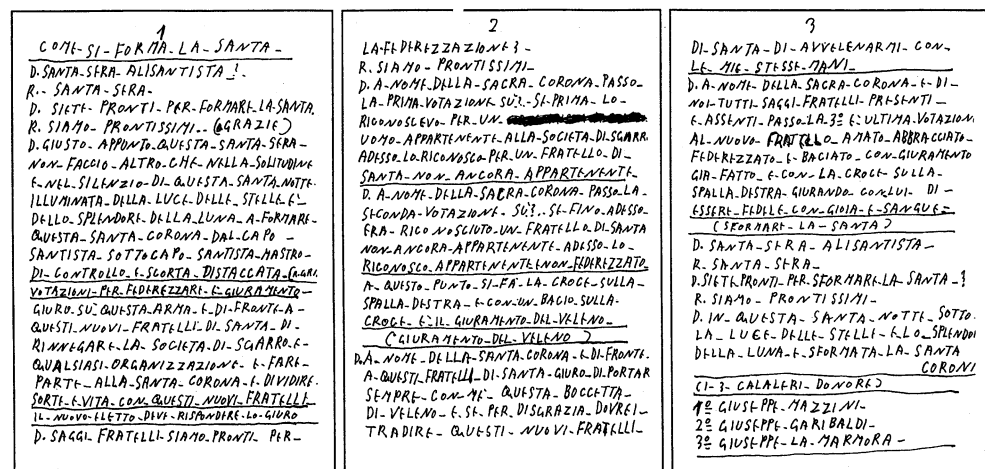 1
COME-SI-FORMA-LA-SANTA-
D. SANTA-SERA-ALISANTISTA-!
R.- SANTA-SERA-
D. SIETE-PRONTI-PER-FORMARE-LA-SANTA.
R. SIAMO-PRONTISSIMI-- (GRAZIE)
D. GIUSTO-APPONTO-QUESTA-SANTA-SERA-
NON-FACCIO-ALTRO-CHE-NELLA-SOLITUDINE
E-NEL-SILENZIO-DI-QUESTA-SANTA-NOTTE-
ILLUMINATA-DELLA-LUCE-DELLE-STELLE-E-
DELLO-SPLENDORE-DELLA-LUNA-A-FORMARE-
QUESTA-SANTA-CORONA-DAL-CAPO-
SANTISTA-SOTTOCAPO-SANTISTA-MASTRO-
DI-CONTROLLO-E-SCORTA-DISTACCATA-
VOTAZIONI-PER-FEDEREZZARE-E-GIURAMENTO-
GIURO-SU-QUESTA-ARMA-E-DI-FRONTE-A-
QUESTI-NUOVI-FRATELLI-DI-SANTA-DI-
RINNEGARE-LA-SOCIETA-DI-SGARRO-E-
QUALSIASI-ORGANIZZAZIONE-E-FARE-
PARTE-ALLA-SANTA-CORONA-E-DIVIDIRE-
SORTE-E-VITA-CON-QUESTI-NUOVI-FRATELLI
IL-NUOVO-ELETTO-DEVE-RISPONDERE-LO-GIURO
D. SAGGI-FRATELLI-SIAMO-PRONTI-PER-
2
LA-FEDEREZZAZIONE?-
R. SIAMO-PRONTISSIMI-
D. A-NOME-DELLA-SACRA-CORONA-PASSO-
LA-PRIMA-VOTAZIONE-SU?-SE-PRIMA-LO-
RICONOSCEVO-PER-UN-
UOMO-APPARTENENTE-ALLA-SOCIETA-DI-SGARR.
ADESSO-LO-RICONOSCO-PER-UN-FRATELLO-DI-
SANTA-NON-ANCORA-APPARTENENTE-
D. A-NOME-DELLA-SACRA-CORONA-PASSO-LA-
SECONDA-VOTAZIONE-SU?..SE-FINO-ADESSO-
ERA-RICONOSCIUTO-UN-FRATELLO-DI-SANTA
NON-ANCORA-APPARTENENTE-ADESSO-LO-
RICONOSCO-APPARTENENTE-E-NON-FEDEREZZATO-
A-QUESTO-PUNTO-SI-FA-LA-CROCE-SULLA-
SPALLA-DESTRA-E-CON-UN-BACIO-SULLA-
CROCE-E-IL-GIURAMENTO-DEL-VELENO-
(GIURAMENTO-DEL-VELENO)
D. A-NOME-DELLA-SANTA-CORONA-E-DI-FRONTE-
A-QUESTI-FRATELLI-DI-SANTA-GIURO-DI-PORTAR
SEMPRE-CON-ME-QUESTA-BOCCETTA-
DI-VELENO-E-SE-PER-DISGRAZIA-DOVREI-
TRADIRE-QUESTI-NUOVI-FRATELLI-
3
DI-SANTA-DI-AVVELENARMI-CON-
LE-MIE-STESSE-MANI-
D. A-NOME-DELLA-SACRA-CORONA-E-DI-
NOI-TUTTI-SAGGI-FRATELLI-PRESENTI-
E-ASSENTI-PASSO-LA-3ª-E-ULTIMA-VOTAZIONE
AL-NUOVO-FRATELLO-AMATO-ABBRACCIATO-
FEDEREZZATO-E-BACIATO-CON-GIURAMENTO
GIA-FATTO-E-CON-LA-CROCE-SULLA-
SPALLA-DESTRA-GIURANDO-CON-LUI-DI-
ESSERE-FEDELE-CON-GIOIA-E-SANGUE=
(SFORMARE-LA-SANTA)
D. SANTA-SERA-ALISANTISTA-
R. SANTA-SERA-
D. SIETE-PRONTI-PER-SFORMARE-LA-SANTA-?
R. SIAMO-PRONTISSIMI-
D. IN-QUESTA-SANTA-NOTTE-SOTTO-
LA-LUCE-DELLE-STELLE-E-LO-SPLENDOR
DELLA-LUNA-E-SFORMATA-LA-SANTA
CORONI
(I-3-CALALERI-DONORE)
1º GIUSEPPE-MAZZINI-
2º GIUSEPPE-GARIBALDI-
3º GIUSEPPE-LA-MARMORA-